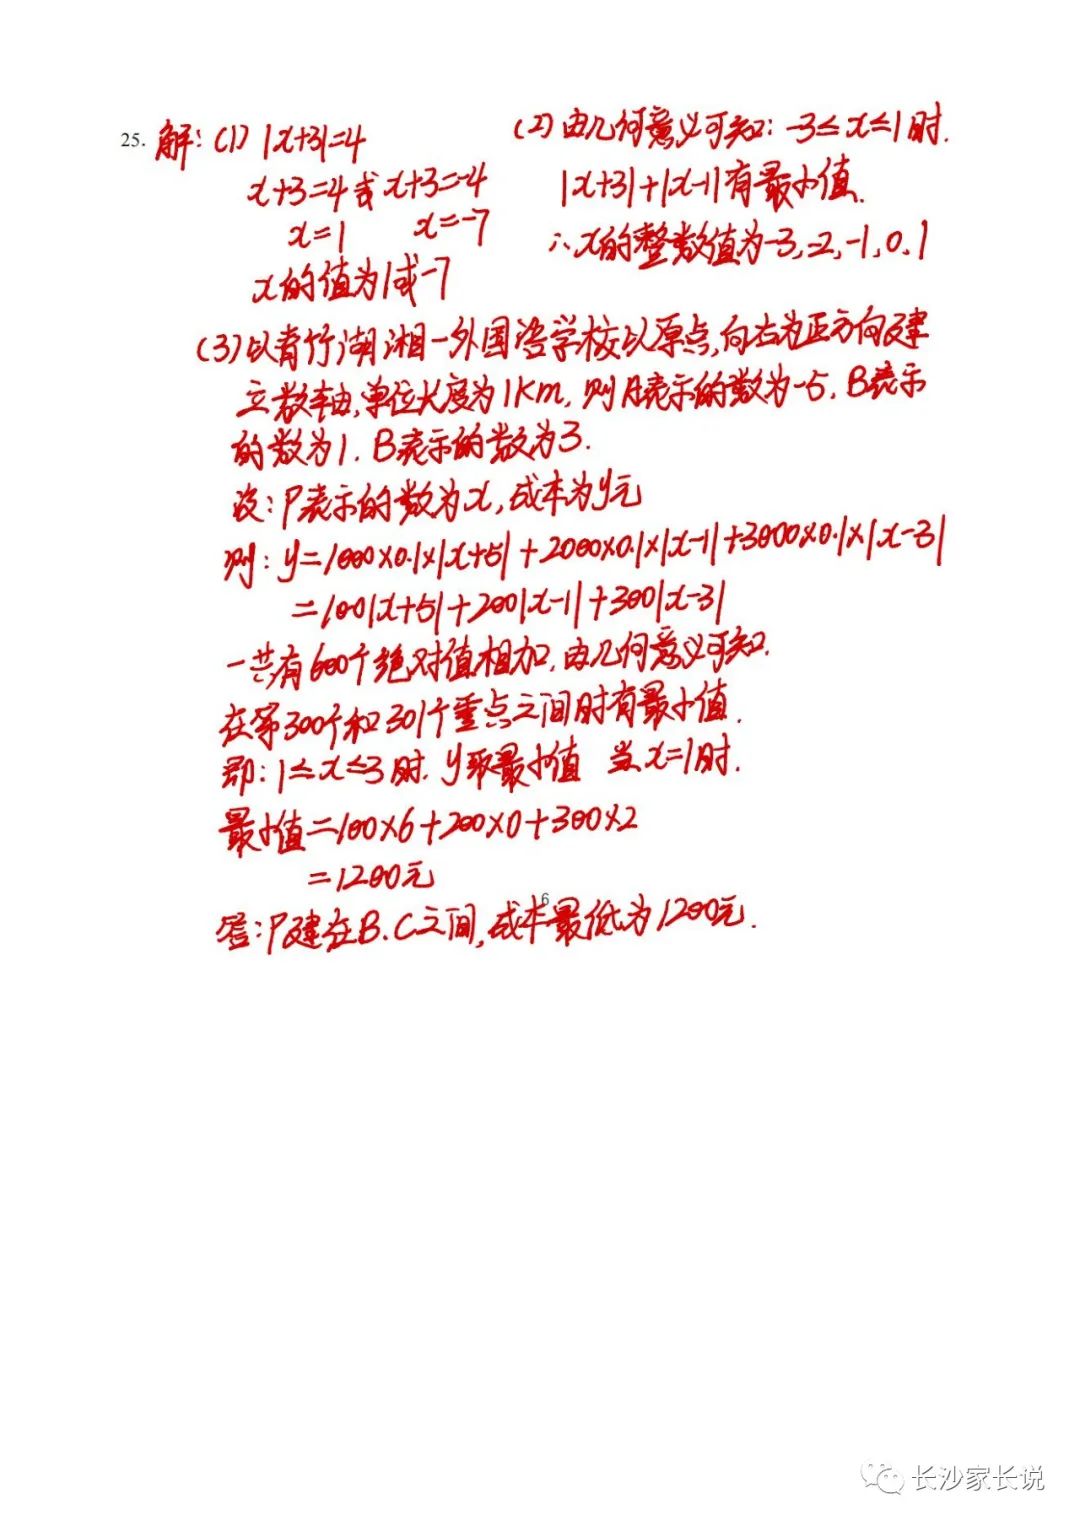 25. 解：(1) |x+3|=4
x+3=4或x+3=-4
x=1 x=-7
x的值为1或-7
(2) 由几何意义可知：-3≤x≤1时.
|x+3|+|x-1|有最小值.
∴x的整数值为-3,-2,-1,0,1
(3)以青竹湖湘一外国语学校以原点,向右为正方向建
立数轴,单位长度为1Km, 则A表示的数为-5, B表示
的数为1. B表示的数为3.
设：P表示的数为x, 成本为y元
则：y=1000×0.1×|x+5|+2000×0.1×|x-1|+3000×0.1×|x-3|
=100|x+5|+200|x-1|+300|x-3|
一共有600个绝对值相加.由几何意义可知.
在第300个和301个重点之间时有最小值.
即：1≤x≤3时. y取最小值 当x=1时.
最小值=100×6+200×0+300×2
=1200元
答：P建在B.C之间,成本最低为1200元.
6
长沙家长说